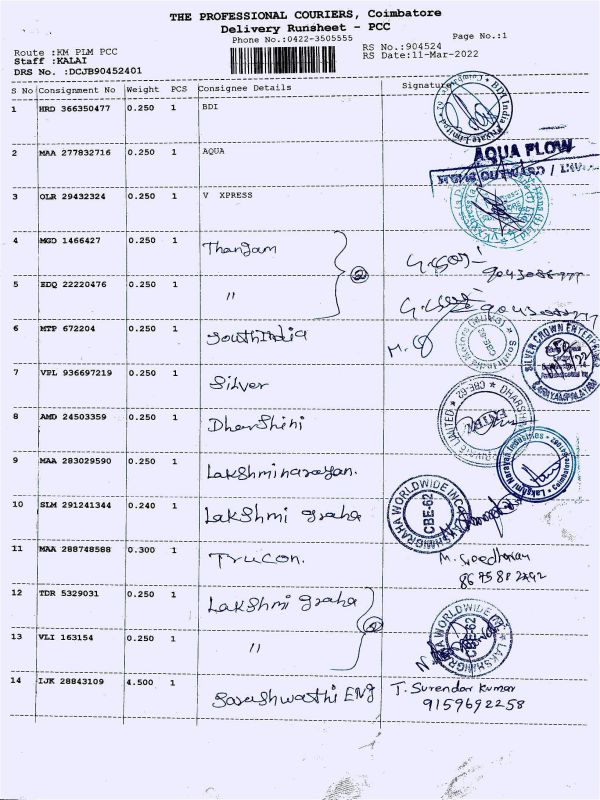 THE PROFESSIONAL COURIERS, Coimbatore
Delivery Runsheet - PCC
Phone No.:0422-3505555
Page No.:1
Route :KM PLM PCC
RS No.:904524
Staff :KALAI
RS Date:11-Mar-2022
DRS No. :DCJB90452401
S No Consignment No Weight PCS Consignee Details Signature
1 HRD 366350477 0.250 1 BDI
BDI India Private Limited
2 MAA 277832716 0.250 1 AQUA
AQUA FLOW
3 OLR 29432324 0.250 1 V XPRESS
4 MGD 1466427 0.250 1 Thangam
2
5 EDQ 22220476 0.250 1 "
6 MTP 672204 0.250 1 SouthIndia
CBE-62
SILVER CROWN ENTERPRISES
7 VPL 936697219 0.250 1 Silver
8 AMD 24503359 0.250 1 Dharshini
PRIVATE LIMITED ★ CBE-62 ★
9 MAA 283029590 0.250 1 Lakshminarayan.
Lakshmi Narayan Industries
10 SLM 291241344 0.240 1 Lakshmi graha
LAKSHMIGRAHA WORLDWIDE INC
CBE-62
11 MAA 288748588 0.300 1 Trucon.
M. Sreedharan
12 TDR 5329031 0.250 1 Lakshmi graha
2
13 VLI 163154 0.250 1 "
LAKSHMIGRAHA WORLDWIDE INC
CBE-62
14 IJK 28843109 4.500 1 Sarashwathi ENG
T. Surendar Kumar
9159692258